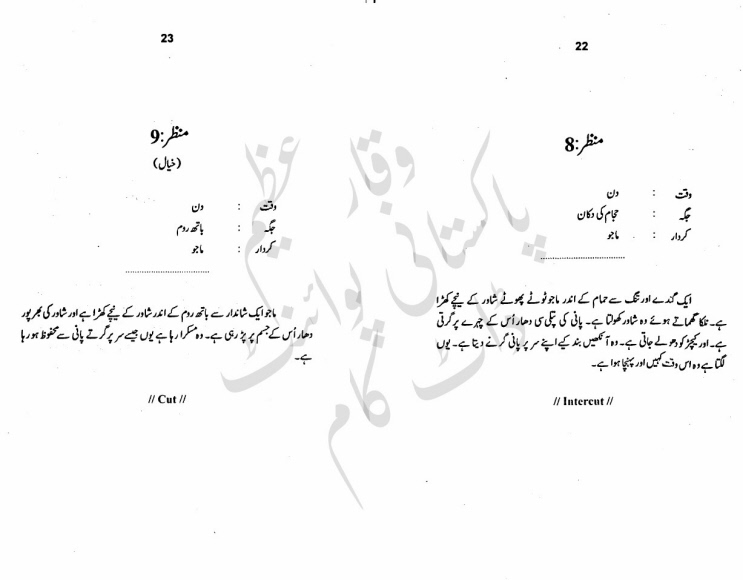 22
منظر:8
وقت : دن
جگہ : حجام کی دکان
کردار : ماجو
ایک گندے اور تنگ سے حمام کے اندر ماجو ٹوٹے پھوٹے شاور کے نیچے کھڑا
ہے۔ نلکا گھماتے ہوئے وہ شاور کھولتا ہے۔ پانی کی پتلی سی دھار اُس کے چہرے پر گرتی
ہے۔ اور کیچڑ کو دھولے جاتی ہے۔ وہ آنکھیں بند کیے اپنے سر پر پانی گرنے دیتا ہے۔ یوں
لگتا ہے وہ اس وقت کہیں اور پہنچا ہوا ہے۔
// Intercut //
23
منظر:9
(خیال)
وقت : دن
جگہ : باتھ روم
کردار : ماجو
ماجو ایک شاندار سے باتھ روم کے اندر شاور کے نیچے کھڑا ہے اور شاور کی بھر پور
دھار اُس کے جسم پر پڑ رہی ہے۔ وہ مسکرا رہا ہے یوں جیسے سر پر گرتے پانی سے محظوظ ہو رہا
ہے۔
// Cut //
وقار عظیم
پاکستانی پوائنٹ
ڈاٹ کام